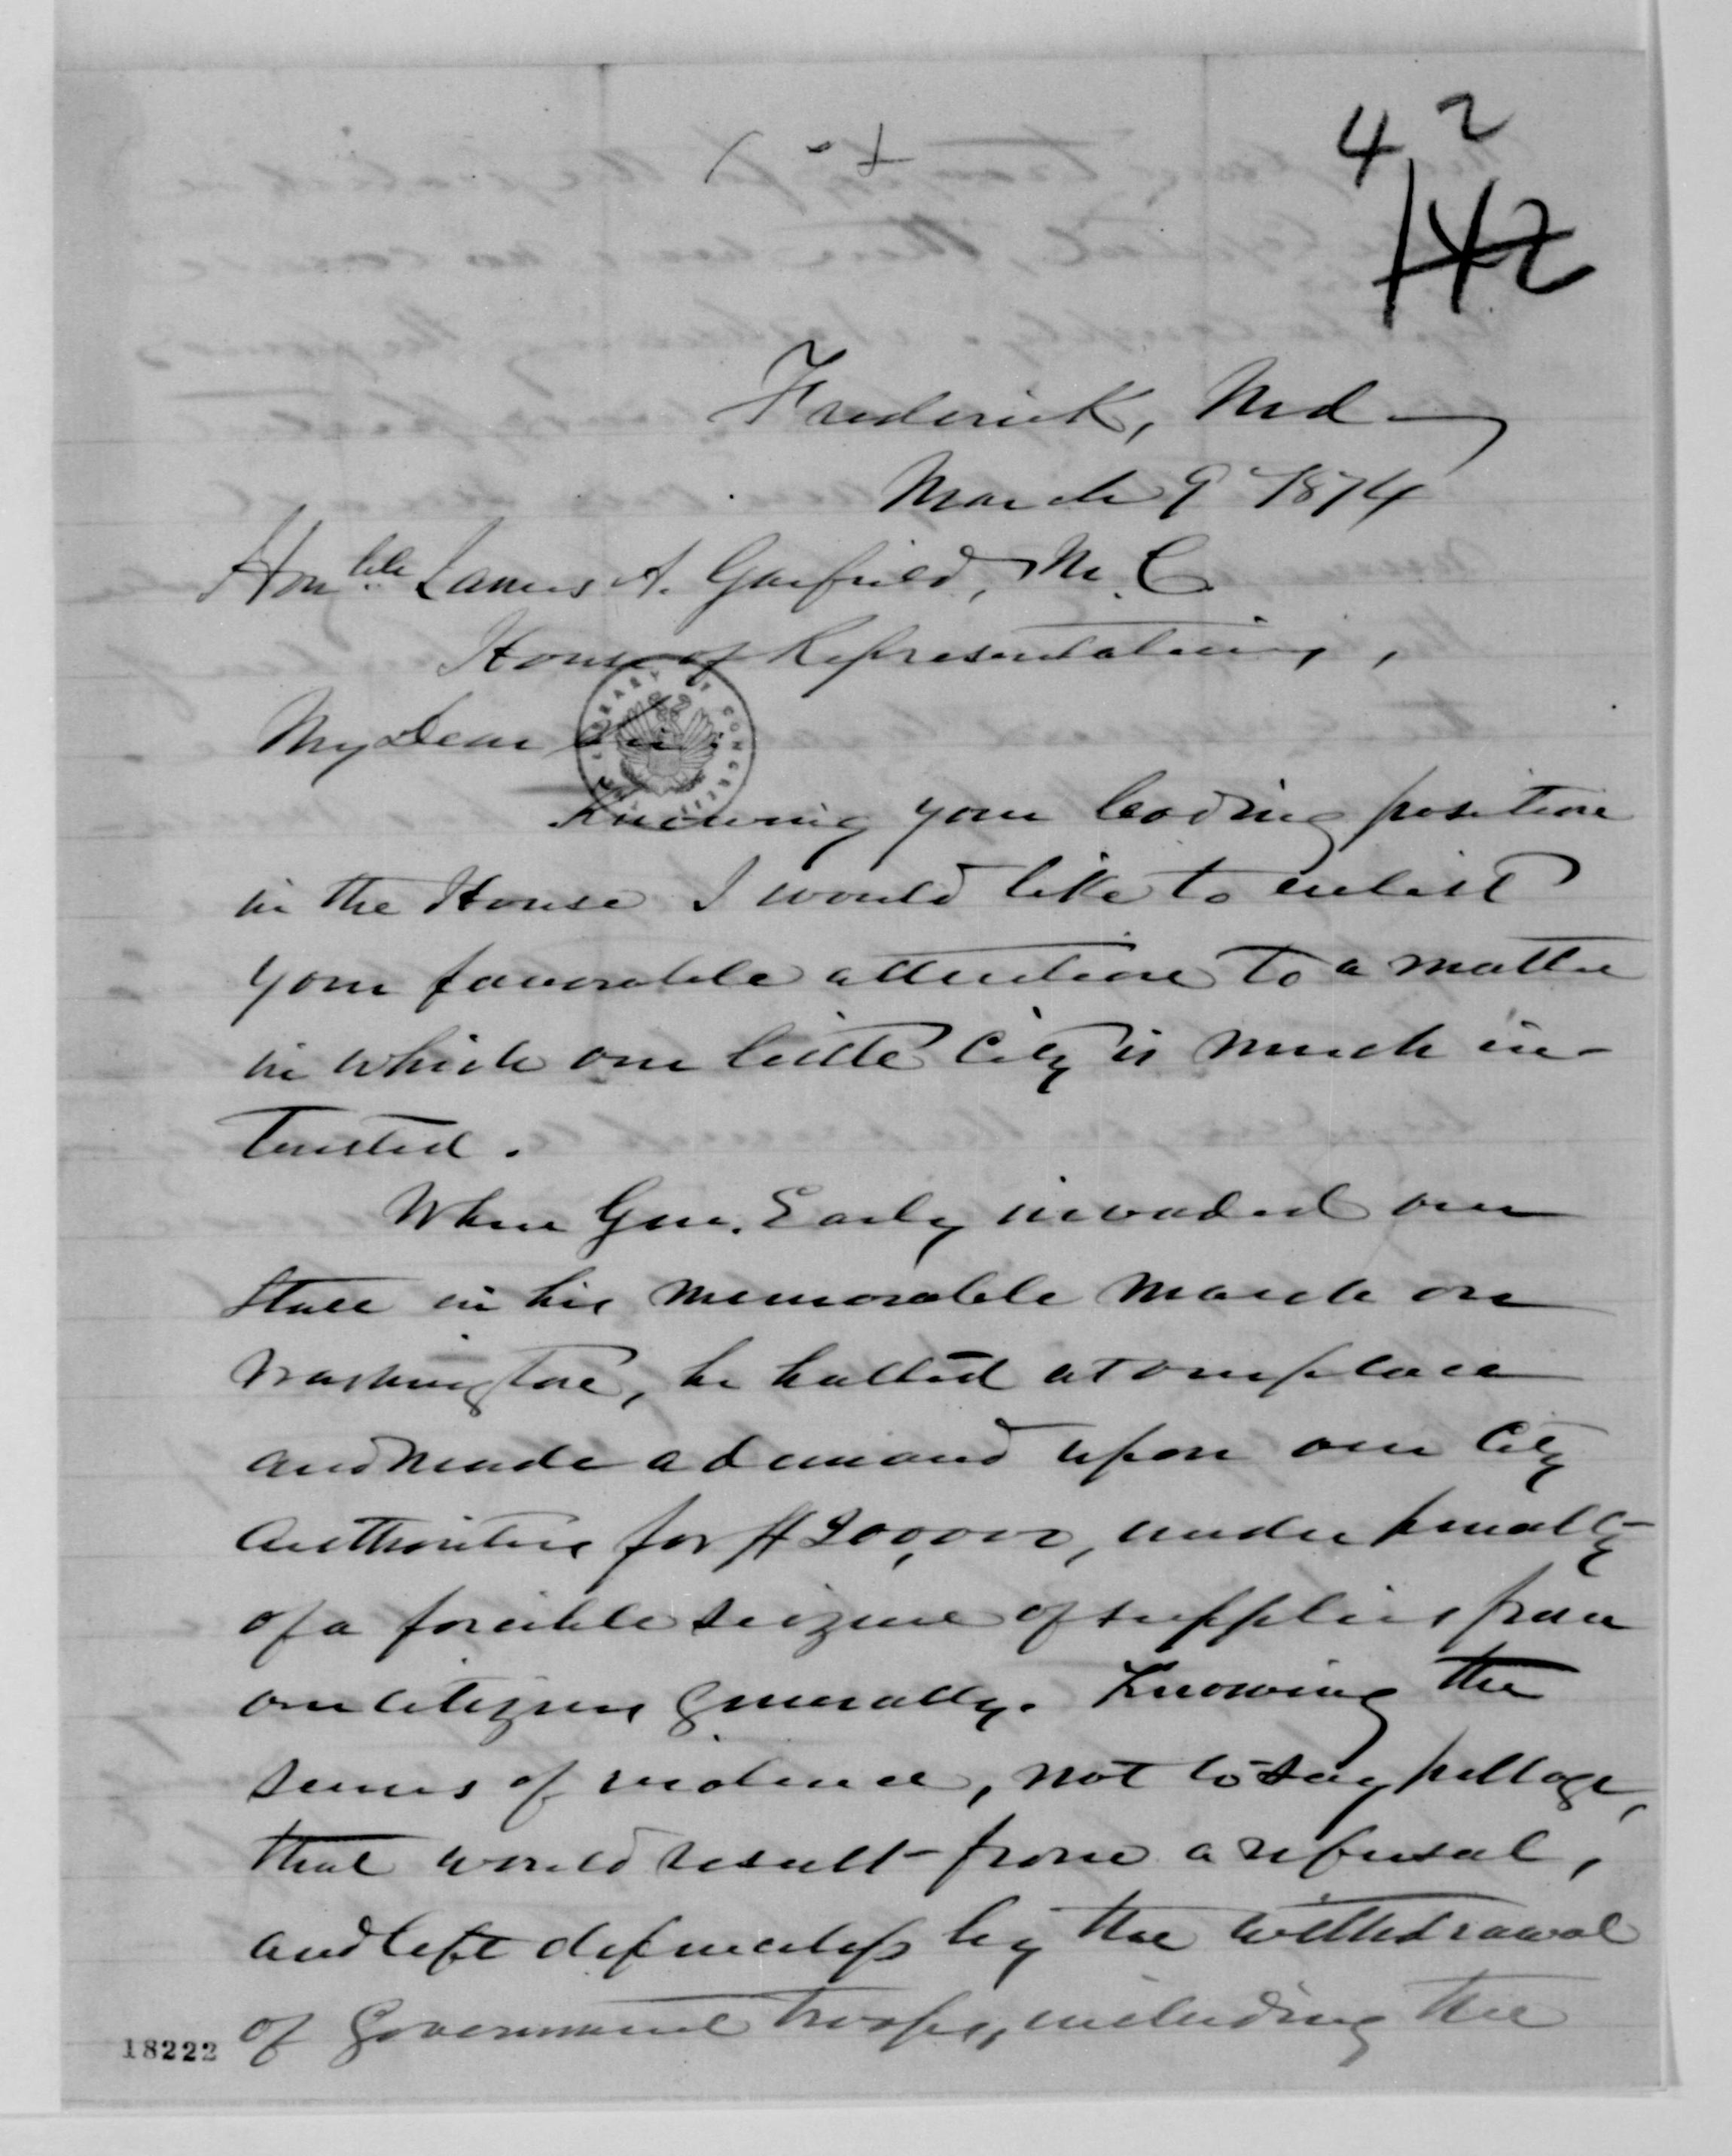 42
142
Frederick, Md
March 9 1874
Honble James A. Garfield, M. C.
House of Representatives,
My Dear Sir:
LIBRARY OF CONGRESS
Knowing your leading position
in the House I would like to enlist
your favorable attention to a matter
in which our little City is much in-
terested.
When Gen. Early invaded our
State in his memorable march on
Washington, he halted at our place
and made a demand upon our City
Authorities for $200,000, under penalty
of a forcible seizure of supplies from
our citizens generally. Knowing the
scenes of violence, not to say pillage,
that would result from a refusal,
and left defenceless by the withdrawal
of Government troops, including the
18222